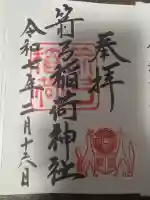 奉拝
符弓稲荷神社
令和七年二月十三日